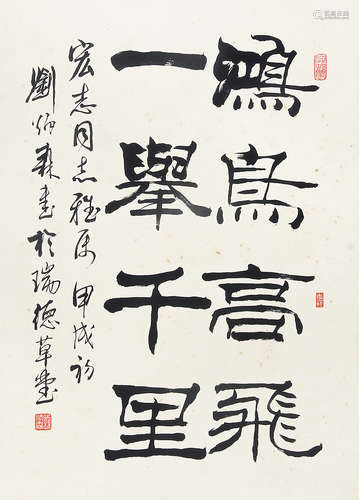 鴻鳥高飛
一舉千里
宏志同志雅屬 甲戌初
劉炳森書於瑞德草堂